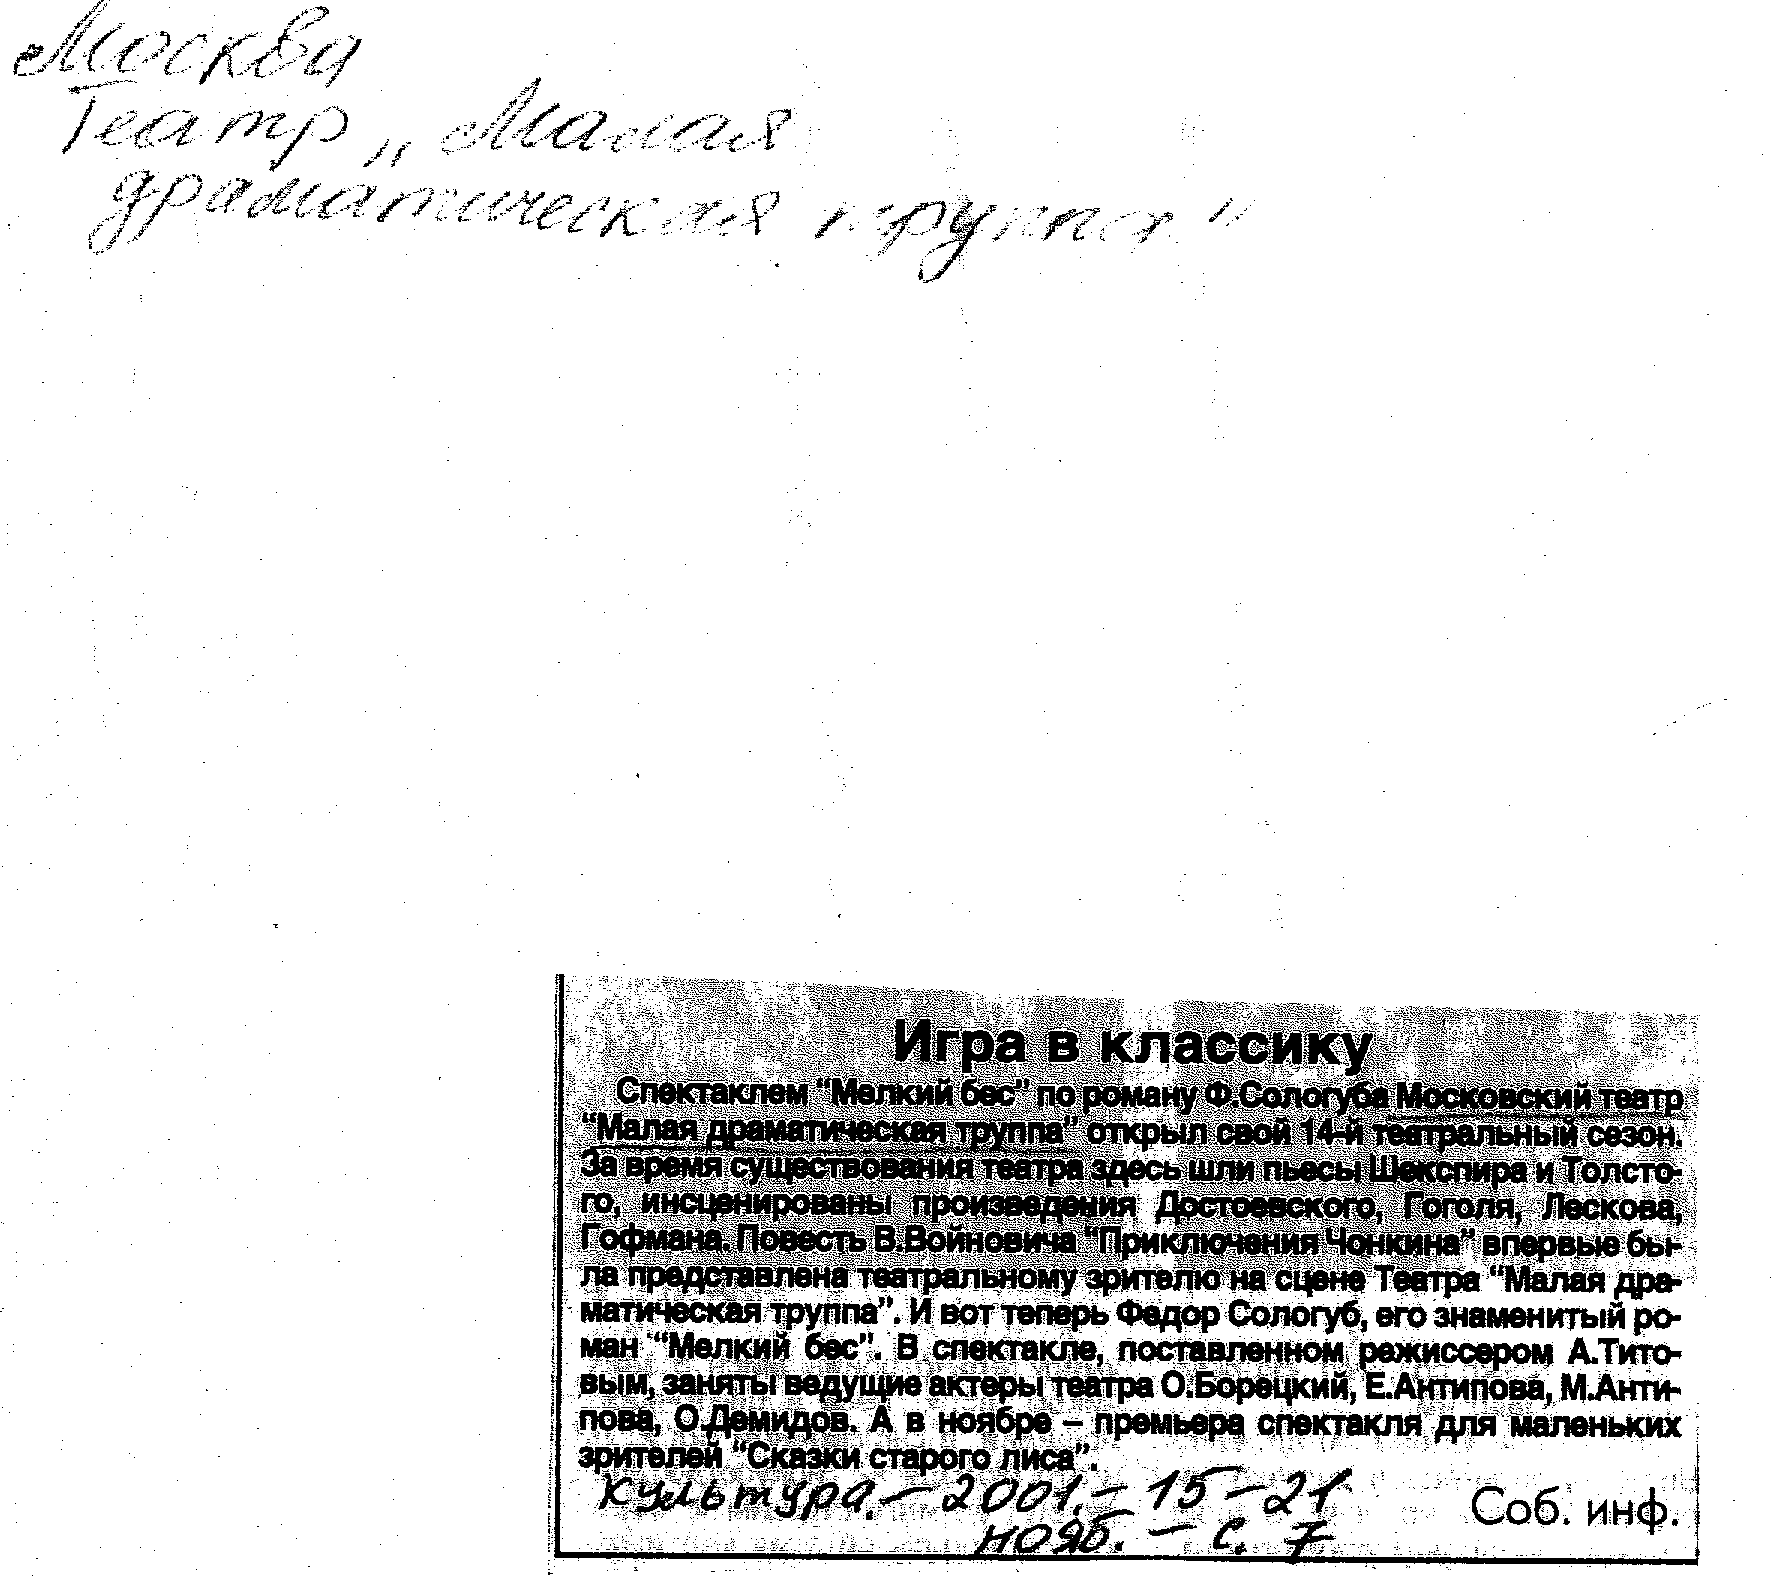 Москва
Театр „Малая
драматическая труппа"
Игра в классику
Спектаклем “Мелкий бес” по роману Ф.Сологуба Московский театр
“Малая драматическая труппа” открыл свой 14-й театральный сезон.
За время существования театра здесь шли пьесы Шекспира и Толсто-
го, инсценированы произведения Достоевского, Гоголя, Лескова,
Гофмана. Повесть В.Войновича “Приключения Чонкина” впервые бы-
ла представлена театральному зрителю на сцене Театра “Малая дра-
матическая труппа”. И вот теперь Федор Сологуб, его знаменитый ро-
ман “Мелкий бес”. В спектакле, поставленном режиссером А.Тито-
вым, заняты ведущие актеры театра О.Борецкий, Е.Антипова, М.Анти-
пова, О.Демидов. А в ноябре – премьера спектакля для маленьких
зрителей “Сказки старого лиса”.
Культура. – 2001. – 15 – 21
нояб. – с. 7
Соб. инф.